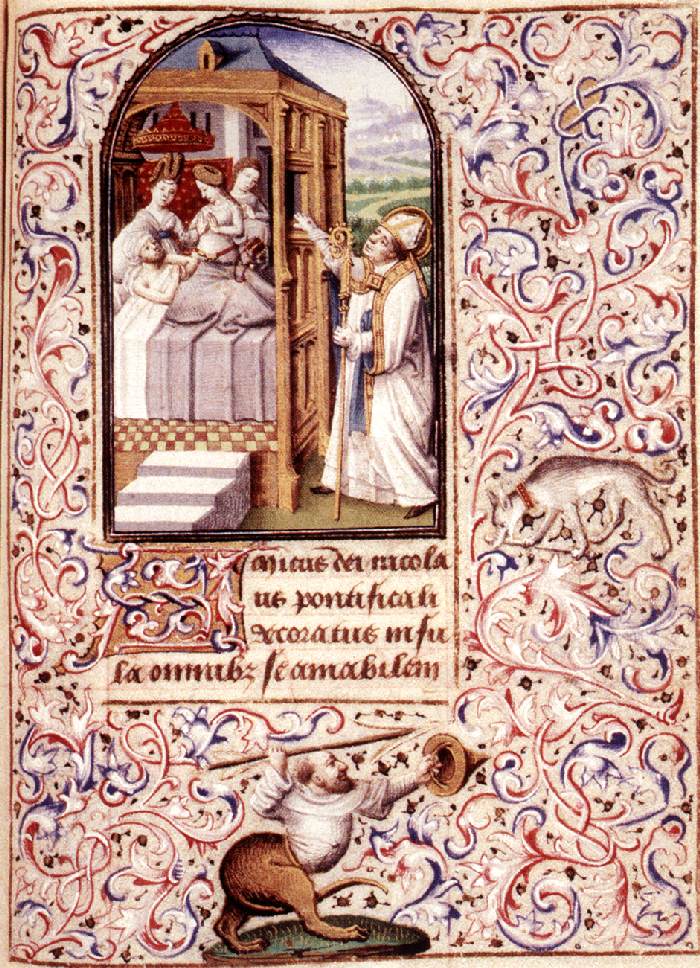 Amicus dei nicola
us pontificali
decoratus insu
la omnibz se amabilem